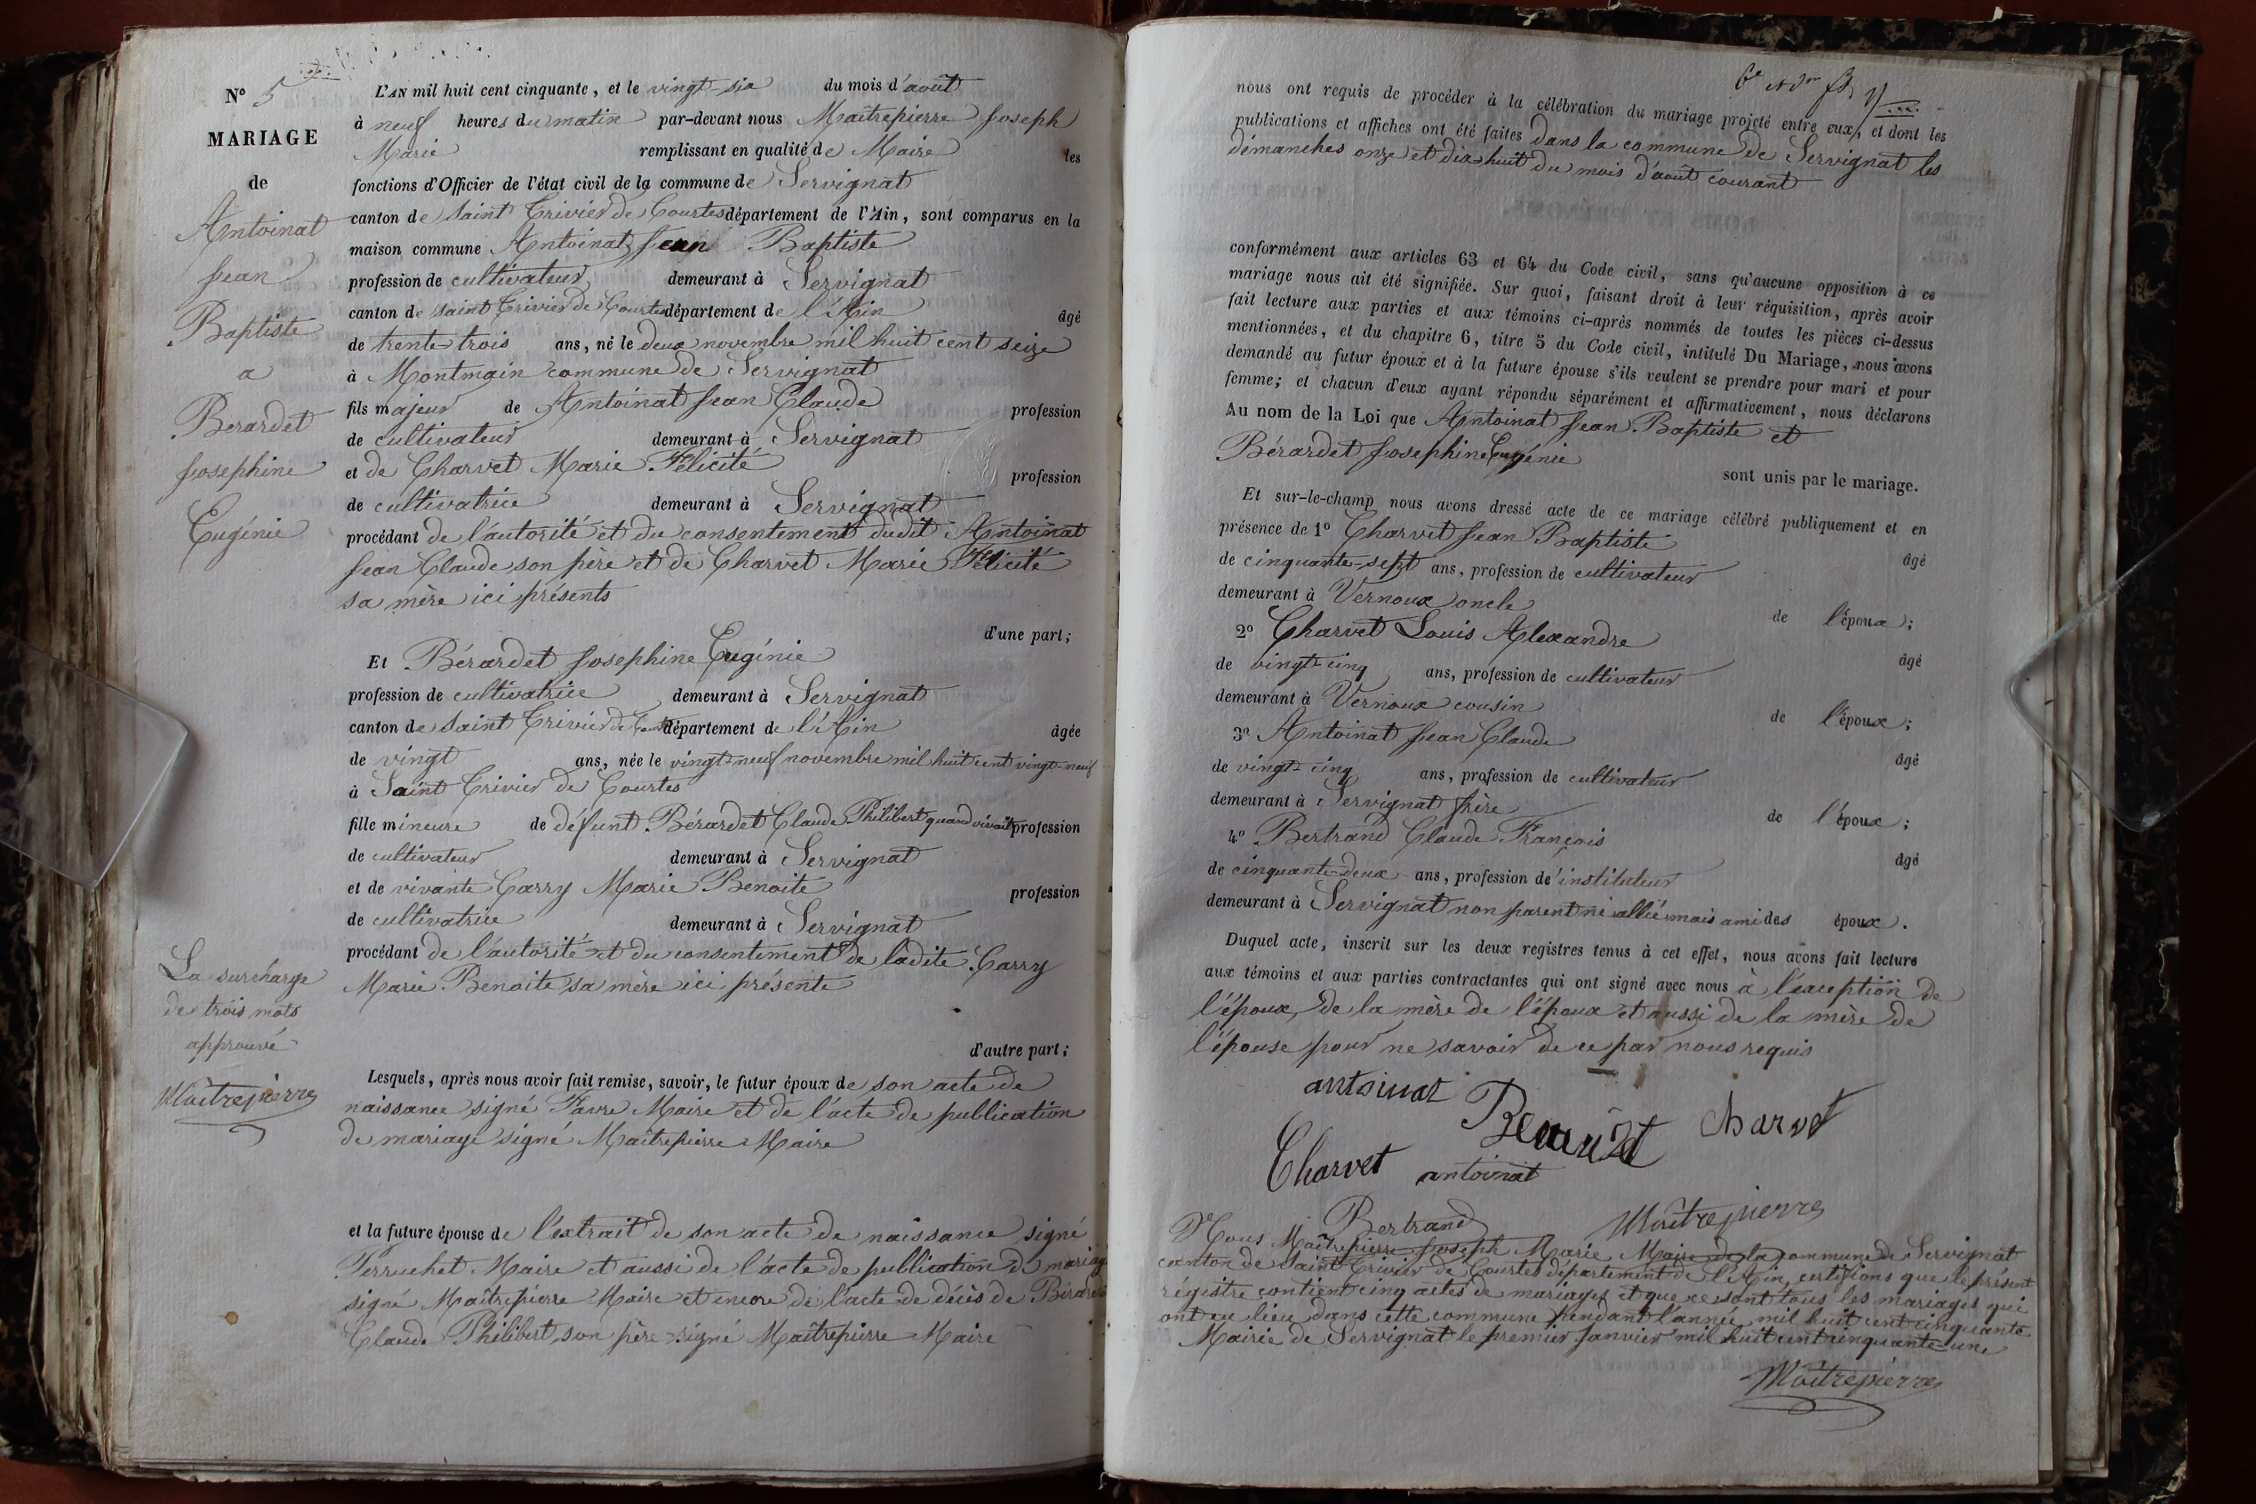 N° 5
MARIAGE
de
Antoinat
Jean
Baptiste
a
Berardet
Josephine
Eugénie
La surcharge
de trois mots
approuvé
Maîtrepierre
L'AN mil huit cent cinquante, et le vingt-six du mois d'août
à neuf heures du matin par-devant nous Maîtrepierre Joseph
Marie remplissant en qualité de Maire les
fonctions d'Officier de l'état civil de la commune de Servignat
canton de saint Trivier de Courtes département de l'Ain, sont comparus en la
maison commune Antoinat Jean Baptiste
profession de cultivateur demeurant à Servignat
canton de saint Trivier de Courtes département de l'Ain âgé
de trente-trois ans, né le deux novembre mil huit cent seize
à Montmain commune de Servignat
fils majeur de Antoinat Jean Claude profession
de cultivateur demeurant à Servignat
et de Charvet Marie Félicité profession
de cultivatrice demeurant à Servignat
procédant de l'autorité et du consentement dudit Antoinat
Jean Claude son père et de Charvet Marie Félicité
sa mère ici présents
d'une part;
Et Bérardet Josephine Eugénie
profession de cultivatrice demeurant à Servignat
canton de saint Trivier de Courtes département de l'Ain âgée
de vingt ans, née le vingt-neuf novembre mil huit cent vingt-neuf
à Saint Trivier de Courtes
fille mineure de défunt Bérardet Claude Philibert quand vivait profession
de cultivateur demeurant à Servignat
et de vivante Carry Marie Benoite profession
de cultivatrice demeurant à Servignat
procédant de l'autorité et du consentement de ladite Carry
Marie Benoite sa mère ici présente
d'autre part;
Lesquels, après nous avoir fait remise, savoir, le futur époux de son acte de
naissance signé Favre Maire et de l'acte de publication
de mariage signé Maîtrepierre Maire
et la future épouse de l'extrait de son acte de naissance signé
Perruchet Maire et aussi de l'acte de publication de mariage
signé Maîtrepierre Maire et encore de l'acte de décès de Bérardet
Claude Philibert son père signé Maîtrepierre Maire
nous ont requis de procéder à la célébration du mariage projeté entre eux, et dont les
publications et affiches ont été faites dans la commune de Servignat les
démanches onze et dix-huit du mois d'août courant
conformément aux articles 63 et 64 du Code civil, sans qu'aucune opposition à ce
mariage nous ait été signifiée. Sur quoi, faisant droit à leur réquisition, après avoir
fait lecture aux parties et aux témoins ci-après nommés de toutes les pièces ci-dessus
mentionnées, et du chapitre 6, titre 5 du Code civil, intitulé Du Mariage, nous avons
demandé au futur époux et à la future épouse s'ils veulent se prendre pour mari et pour
femme; et chacun d'eux ayant répondu séparément et affirmativement, nous déclarons
Au nom de la Loi que Antoinat Jean Baptiste et
Bérardet Josephine Eugénie
sont unis par le mariage.
Et sur-le-champ nous avons dressé acte de ce mariage célébré publiquement et en
présence de 1° Charvet Jean Baptiste âgé
de cinquante-sept ans, profession de cultivateur
demeurant à Vernoux oncle de l'époux;
2° Charvet Louis Alexandre âgé
de vingt-cinq ans, profession de cultivateur
demeurant à Vernoux cousin de l'époux;
3° Antoinat Jean Claude âgé
de vingt-cinq ans, profession de cultivateur
demeurant à Servignat frère de l'époux;
4° Bertrand Claude François âgé
de cinquante-deux ans, profession d'instituteur
demeurant à Servignat non parent ni allié mais ami des époux.
Duquel acte, inscrit sur les deux registres tenus à cet effet, nous avons fait lecture
aux témoins et aux parties contractantes qui ont signé avec nous à l'exception de
l'époux, de la mère de l'époux et aussi de la mère de
l'épouse pour ne savoir de ce par nous requis
antoinat
Berardet
Charvet
Charvet
antoinat
Bertrand
Maîtrepierre
Nous Maîtrepierre Joseph Marie, Maire de la commune de Servignat
canton de Saint Trivier de Courtes département de l'Ain, certifions que le présent
régistre contient cinq actes de mariages et que ce sont tous les mariages qui
ont eu lieu dans cette commune pendant l'année mil huit cent cinquante
Mairie de Servignat le premier Janvier mil huit cent cinquante-une
Maîtrepierre